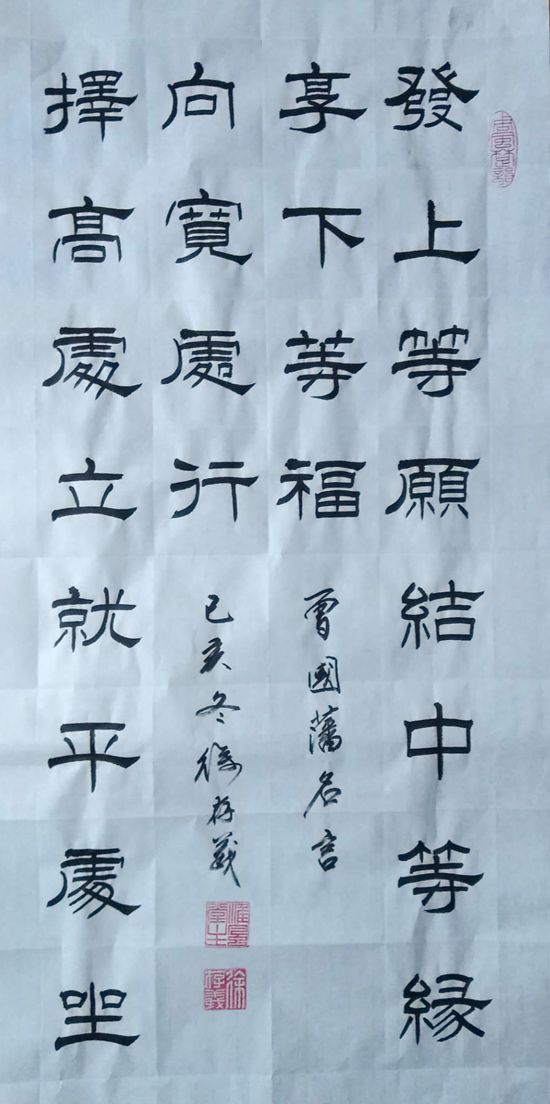 發上等願結中等緣
享下等福
曾國藩名言
擇高處立就平處坐
向寬處行
己亥冬徐存義
徐存義